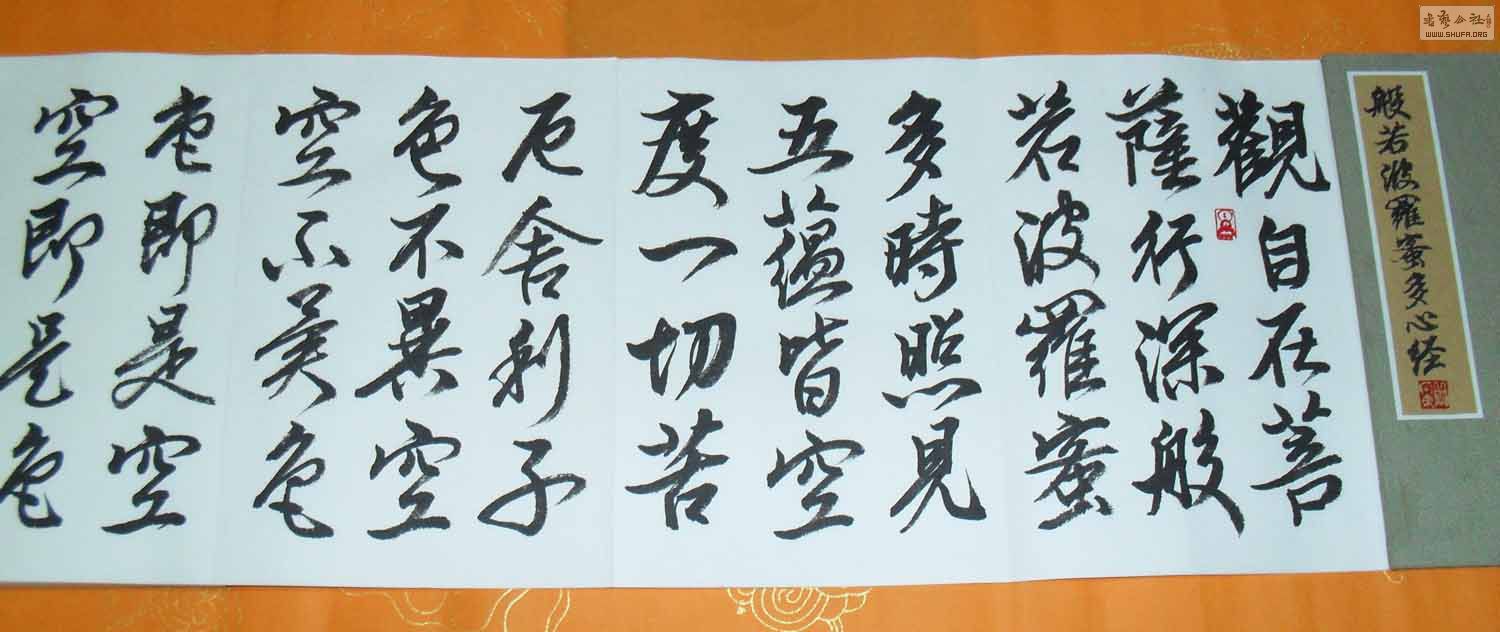 般若波羅蜜多心经
觀自在菩
薩行深般
若波羅蜜
多時照見
五蘊皆空
度一切苦
厄舍利子
色不異空
空不異色
色即是空
空即是色
書藝公社
WWW.SHUFA.ORG